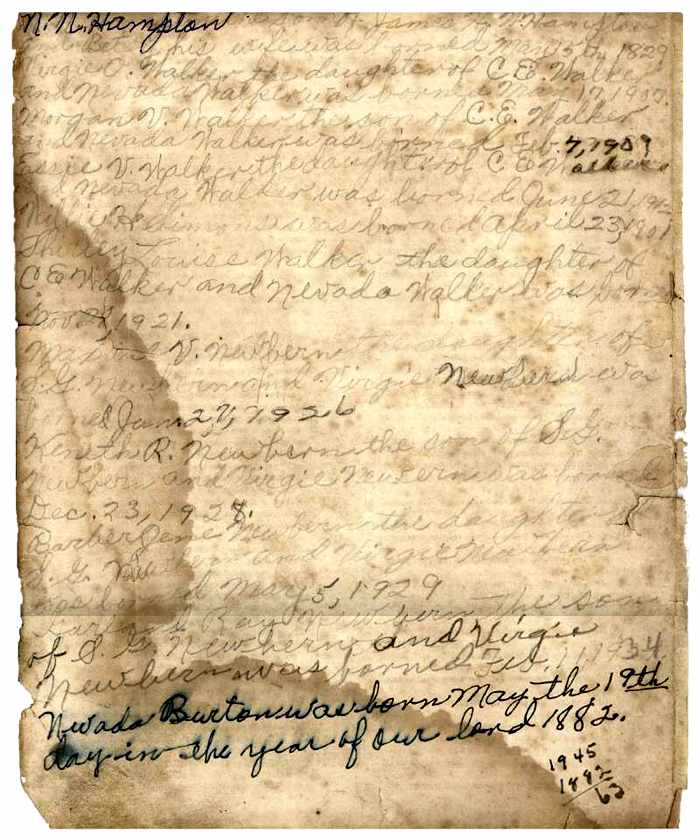 N. N. Hampton son of James N. Hampton
his wife was borned May 5th, 1829
Virgie O. Walker the daughter of C.E. Walker
and Nevada Walker was borned May 17, 1907.
Morgan V. Walker the son of C.E. Walker
and Nevada Walker was borned Feb. 7, 1909
V. Walker the daughter of C E Walker
Nevada Walker was borned June 21, 19
was borned April 23, 1901
Shirley Louise Walker the daughter of
C E Walker and Nevada Walker was born
Nov. 1921.
V. Newbern the daughter of
S. G. Newbern and Virgie Newbern was
borned Jan. 27, 1926
Keneth R. Newbern the son of S.G.
Newbern and Virgie Newbern was borned
Dec. 23, 1927.
Barber Jene Newbern the daughter of
S. G. Newbern and Virgie Newbern
was borned May 5, 1929
Ray Newbern the son
of S. G. Newbern and Virgie
Newbern was borned Feb. 1934
Nevada Burton was born May the 19th
day in the year of our lord 1882.
1945
1882
63